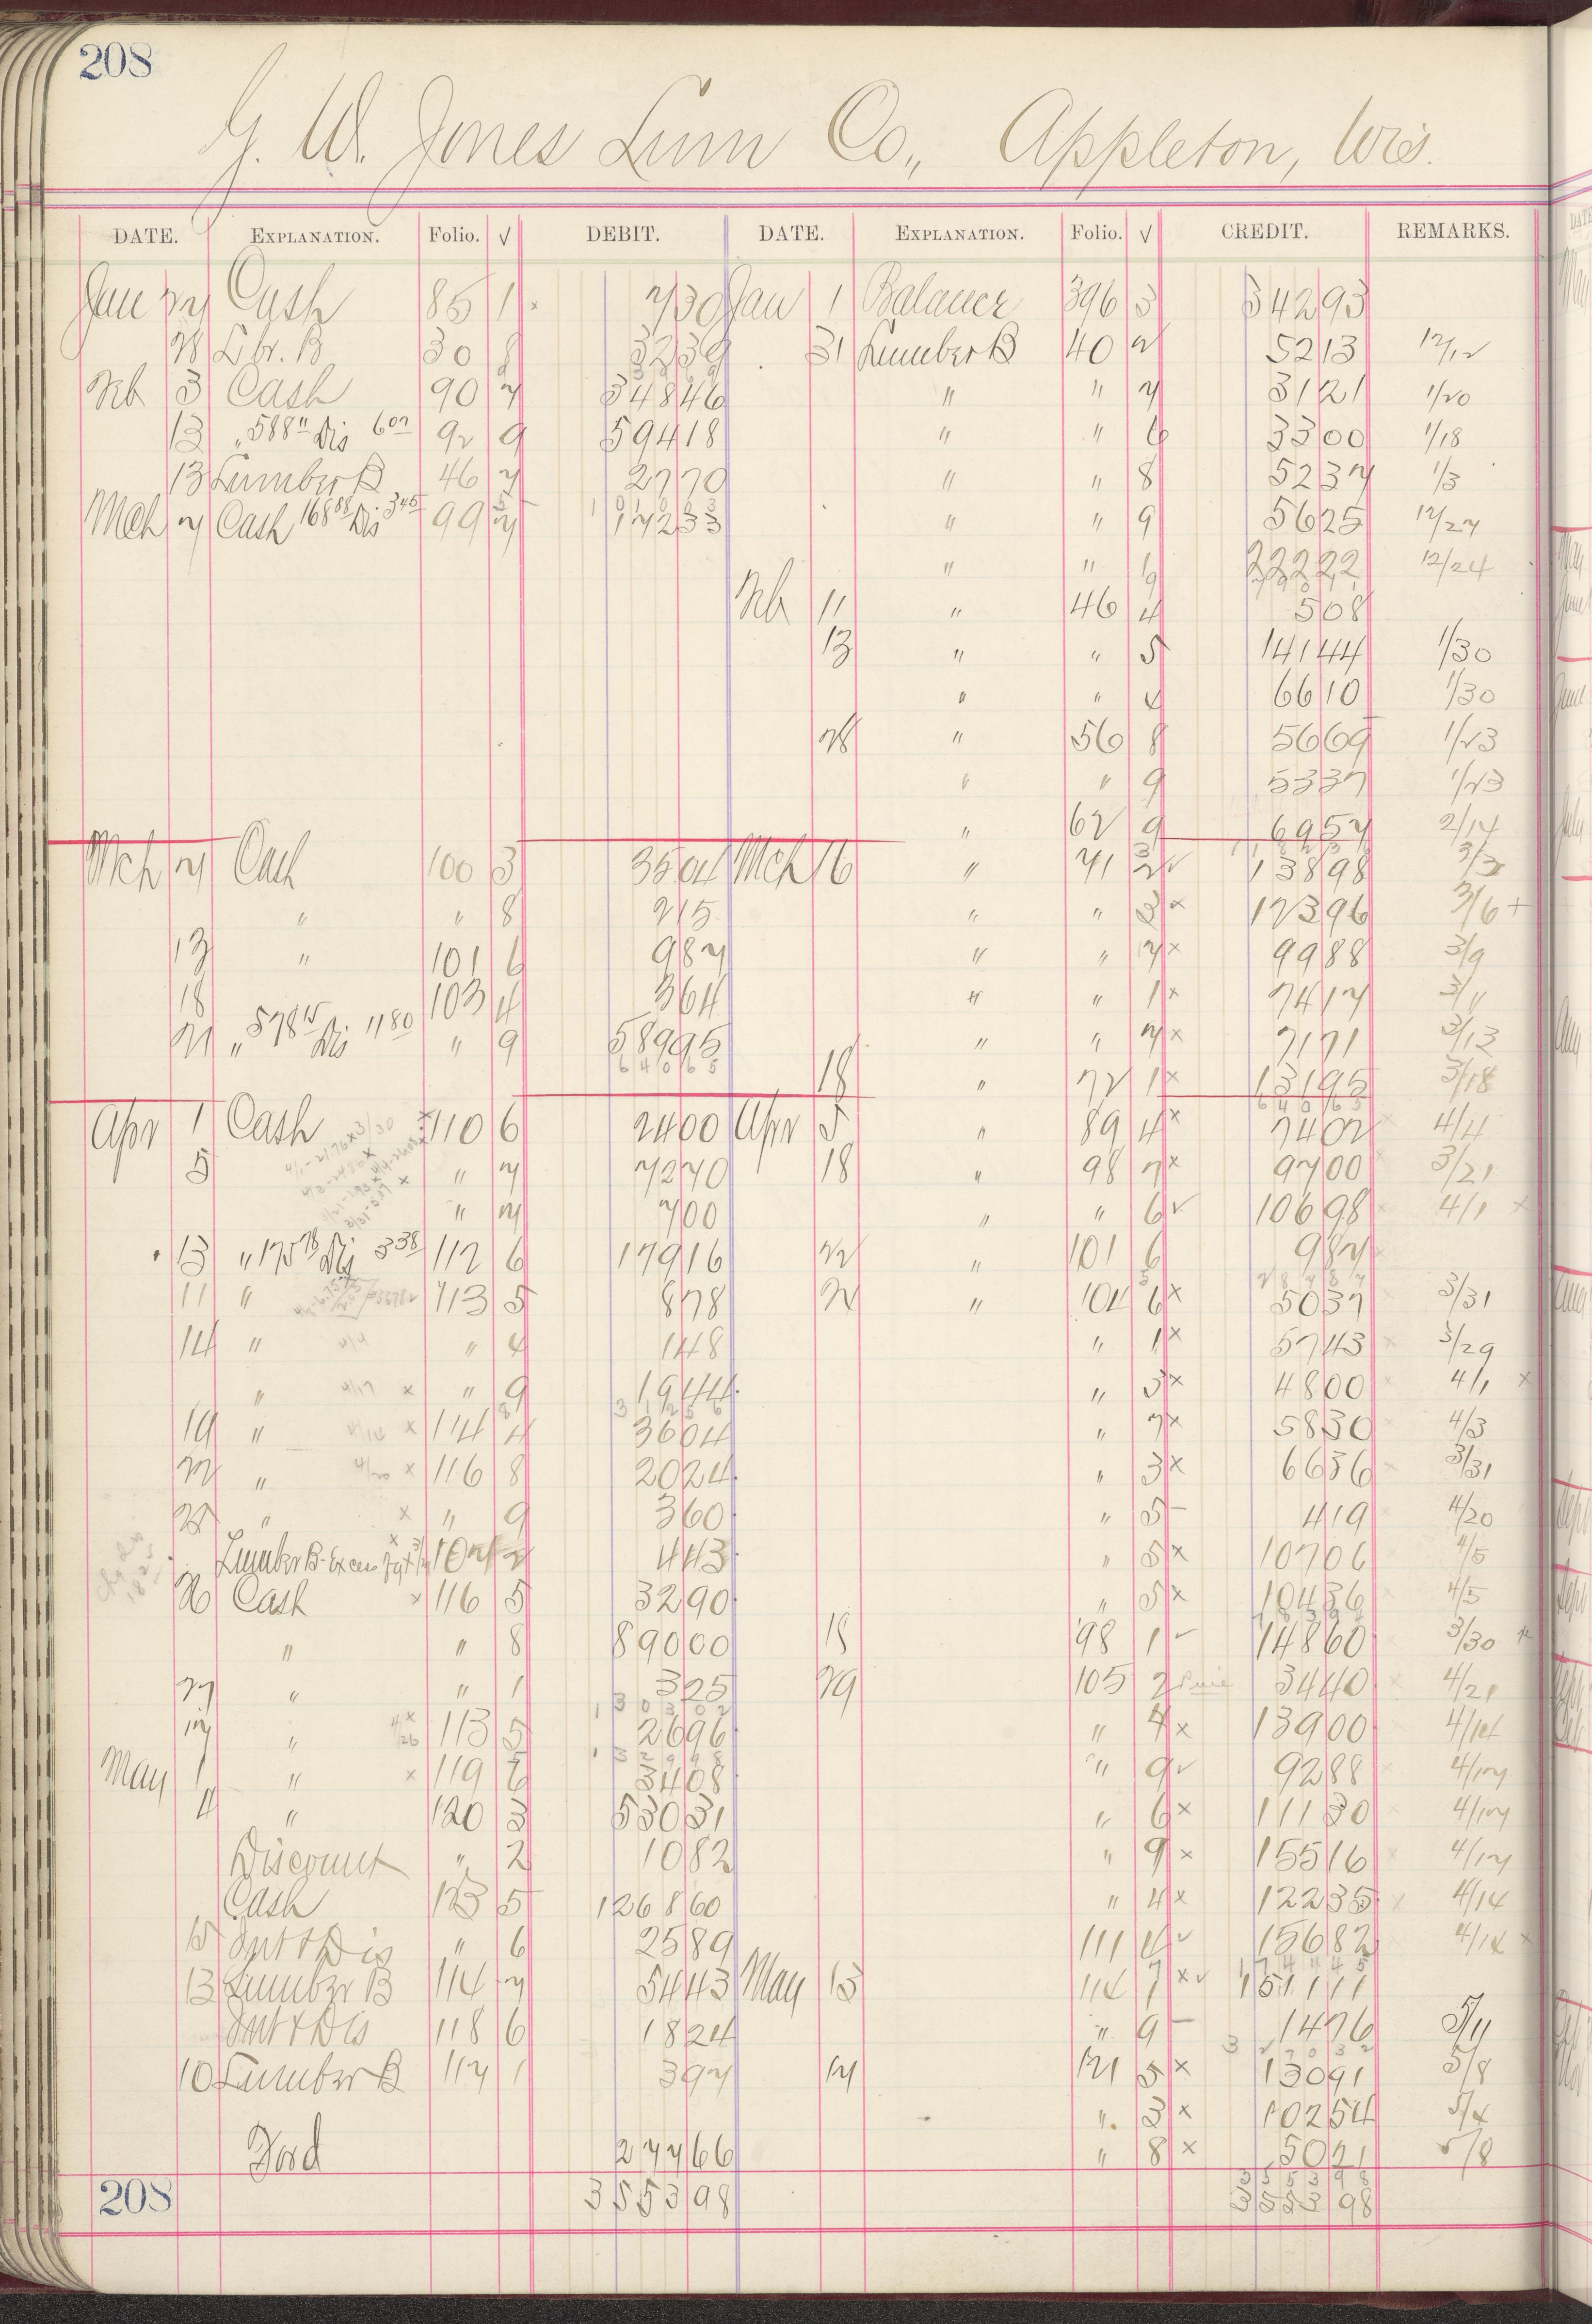 208
G. W. Jones Lum Co., Appleton, Wis.
DATE. EXPLANATION. Folio. √ DEBIT. DATE. EXPLANATION. Folio. √ CREDIT. REMARKS.
Jan 27 Cash 85 1 7 30 Jan 1 Balance 396 3 342 93
28 Lbr. B 30 8 32 39 31 Lumber B 40 2 52 13 12/12
Feb 3 Cash 90 7 348 46 " " 7 31 21 1/20
13 " 588 11 Dis 6 07 92 9 594 18 " " 6 33 00 1/18
13 Lumber B 46 7 27 70 " " 8 52 37 1/3
Mch 7 Cash 168 88 Dis 3 45 99 7 172 33 " " 9 56 25 12/27
" " 222 22 12/24
Feb 11 " 46 4 5 08
13 " " 5 141 44 1/30
" " 4 66 10 1/30
28 " 56 8 56 69 1/23
" " 9 53 37 1/23
" 62 9 69 57 2/14
Mch 7 Cash 100 3 35 04 Mch 16 " 71 2 138 98 3/3
" " 8 2 15 " " 3 x 123 96 3/6 +
13 " 101 6 9 87 " " 7 x 99 88 3/9
18 103 4 3 64 " " 1 x 74 17 3/11
21 " 578 15 Dis 11 80 " 9 589 95 " " 7 x 71 71 3/13
6 4 0 6 5
18 " 72 1 x 131 95 3/18
6 4 0 6 5
Apr 1 Cash 110 6 24 00 Apr 5 " 89 4 x 74 02 4/4
5 " 7 72 70 18 " 98 7 x 97 00 3/21
" 7 7 00 " " 6 √ 106 98 4/1 x
13 " 175 78 Dis 3 38 112 6 179 16 22 " 101 6 9 87
11 " 113 5 8 78 " 104 6 x 50 37 3/31
14 " 4/4 " 4 1 48 " 1 x 57 43 3/29
" 4/17 x " 9 19 44 " 3 x 48 00 4/1 x
19 " x 114 4 36 04 " 7 x 58 30 4/3
22 " 4/20 x 116 8 20 24 " 3 x 66 36 3/31
" x " 9 3 60 " 5 - 4 19 4/20
Lumber B - 4 43 " 5 x 107 06 4/5
26 Cash x 116 5 32 90 " 5 x 104 36 4/5
" " 8 890 00 18 98 1 148 60 3/30
27 " " 1 3 25 29 105 2 34 40 4/21
" 4/26 x 113 5 26 96 " 4 x 139 00 4/14
May 1 " x 119 6 34 08 " 9 √ 92 88 4/17
4 " 120 3 530 31 " 6 x 111 30 4/17
Discount " 2 10 82 " 9 x 155 16 4/17
Cash 123 5 1268 60 " 4 x 122 35 4/14
15 Int & Dis " 6 25 89 111 4 √ 156 82 4/14 x
13 Lumber B 114 7 54 43 May 13 114 7 x √ 151 11
Int & Dis 118 6 18 24 " 9 - 14 76 5/11
10 Lumber B 117 1 3 97 17 121 5 x 130 91 5/8
" 3 x 102 54 5/4
Ford 277 66 " 8 x 50 21 5/8
3 5 5 3 9 8
208 3553 98 3553 98